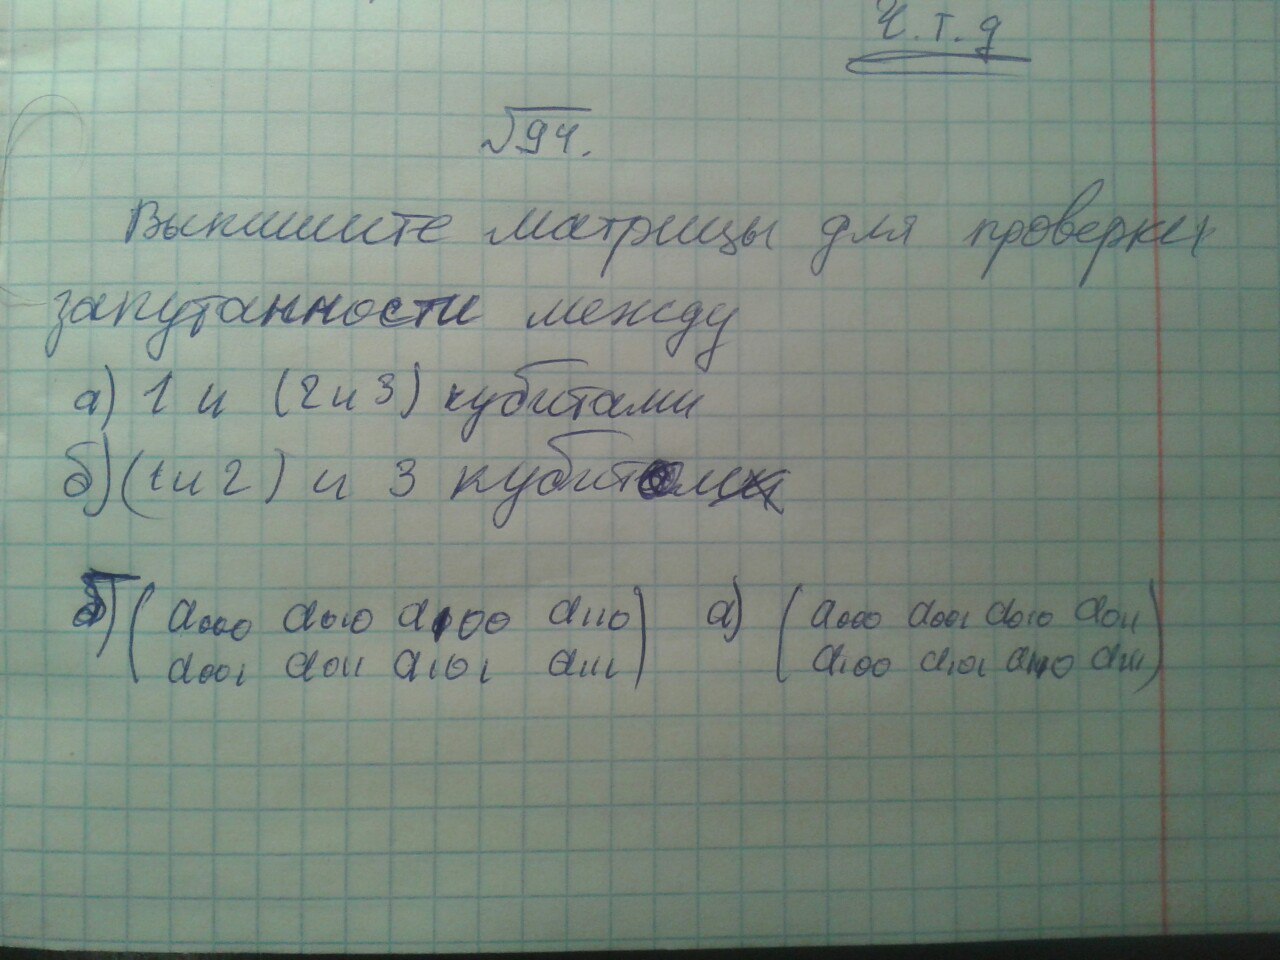 Ч.т.д
√94.
Выпишите матрицы для проверки
запутанности между
а) 1 и (2 и 3) кубитами
б) (1 и 2) и 3 кубитом
б) ( a000 a010 a100 a110 ) а) ( a000 a001 a010 a011 )
( a001 a011 a101 a111 ) ( a100 a101 a110 a111 )